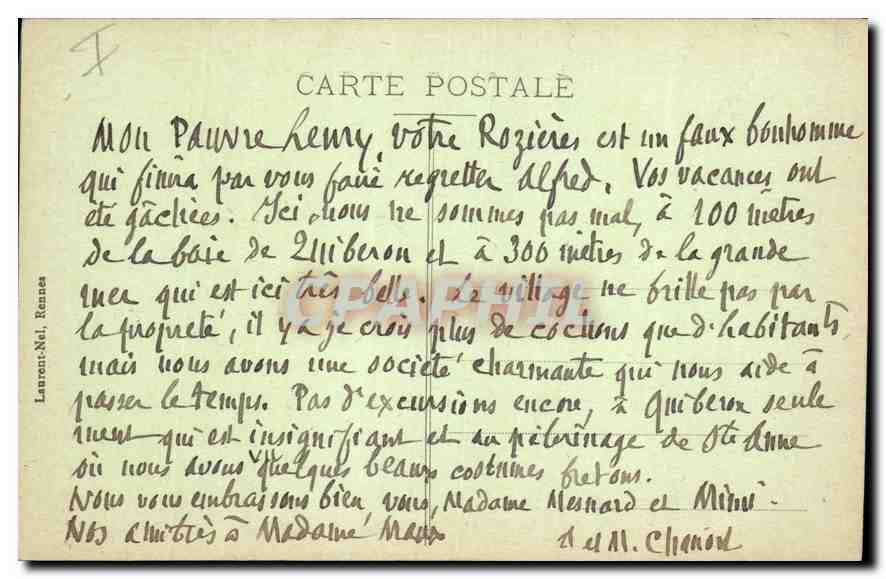 I
CARTE POSTALE
Mon Pauvre henry, votre Rozières est un faux bonhomme
qui finira par vous faire regretter Alfred. Vos vacances ont
été gâchées. Ici, nous ne sommes pas mal, à 100 mètres
de la baie de Quiberon et à 300 mètres de la grande
mer qui est ici très belle. Le village ne brille pas par
la propreté, il y a je crois plus de cochons que d'habitants,
mais nous avons une société charmante qui nous aide à
passer le temps. Pas d'excursions encore, à Quiberon seule
ment qui est insignifiant et au pélerinage de Ste Anne
où nous avons vu quelques beaux costumes bretons.
Nous vous embrassons bien, vous, Madame Mesnard et Mimi.
Nos amitiés à Madame
et M.
Laurent-Nel, Rennes
CPAPHIL